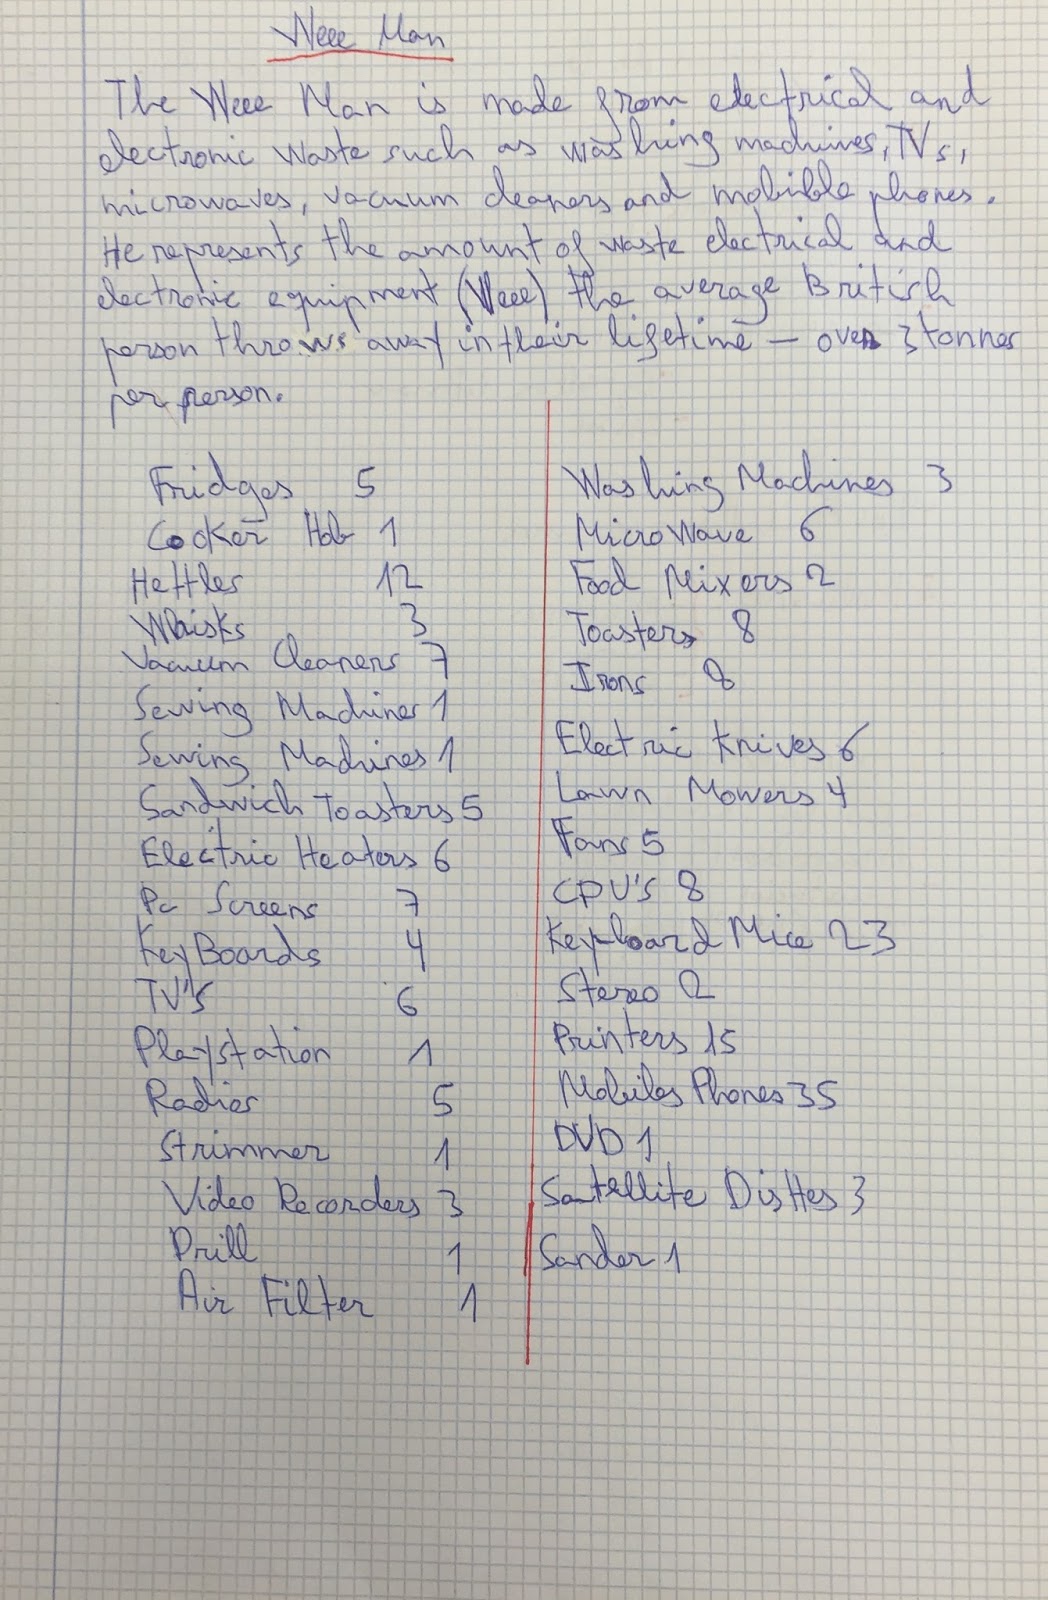 Weee Man
The Weee Man is made from electrical and
electronic waste such as washing machines, TVs,
microwaves, vacuum cleaners and mobible phones.
He represents the amount of waste electrical and
electronic equipment (Weee) the average British
person throws away in their lifetime – over 3 tonnes
per person.
Fridges 5
Cooker Hob 1
Hettles 12
Whisks 3
Vacuum Cleaners 7
Sewing Machines 1
Sewing Machines 1
Sandwich Toasters 5
Electric Heaters 6
Pc Screens 7
KeyBoards 4
TV's 6
Playstation 1
Radios 5
Strimmer 1
Video Recorders 3
Drill 1
Air Filter 1
Washing Machines 3
MicroWave 6
Food Mixers 2
Toasters 8
Irons 8
Electric Knives 6
Lawn Mowers 4
Fans 5
CPU'S 8
Keyboard Mice 23
Stereo 2
Printers 15
Mobiles Phones 35
DVD 1
Satellite DisHes 3
Sander 1